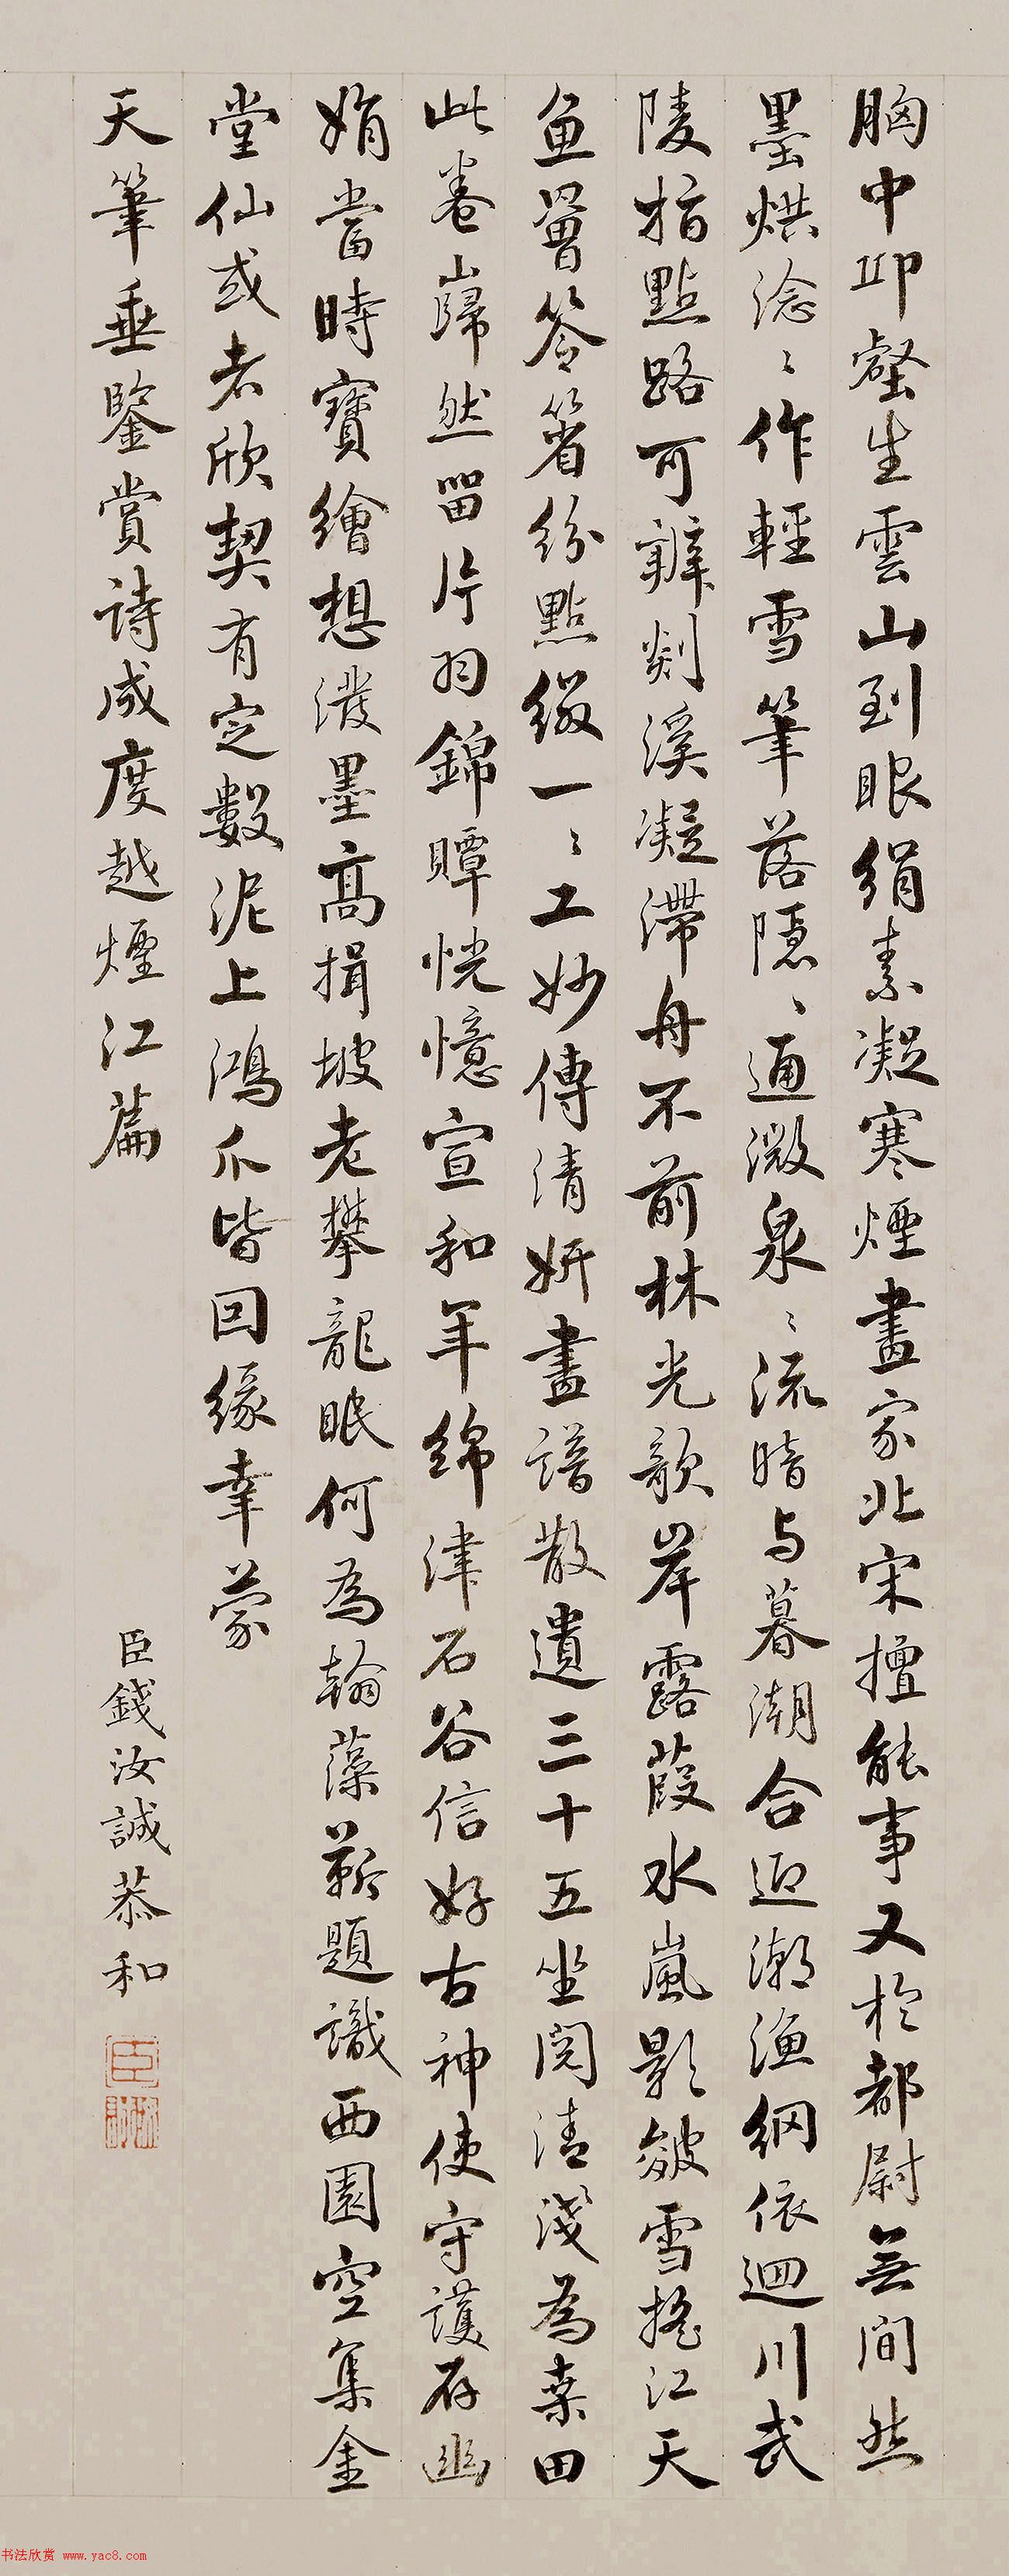 胸中邱壑生雲山到眼絹素凝寒煙畫家北宋擅能事又於都尉無間然
墨烘淰〻作輕雪筆落隱〻通微泉〻流暗与暮潮合迎潮漁網依迴川武
陵指點路可辨剡溪凝滯舟不前林光歛岸露葭水嵐影皴雪搖江天
魚罾笭箵紛點綴一〻工妙傳清妍畫譜散遺三十五坐閱清淺為桑田
此卷巋然留片羽錦贉恍憶宣和年綿津石谷信好古神使守護存幽
娟當時寶繪想潑墨高揖坡老攀龍眠何為翰藻靳題識西園空集金
堂仙或者欣契有定數泥上鴻爪皆因緣幸蒙
天筆垂鑒賞詩成度越煙江篇
臣錢汝誠恭和
臣
书法欣赏 www.yac8.com